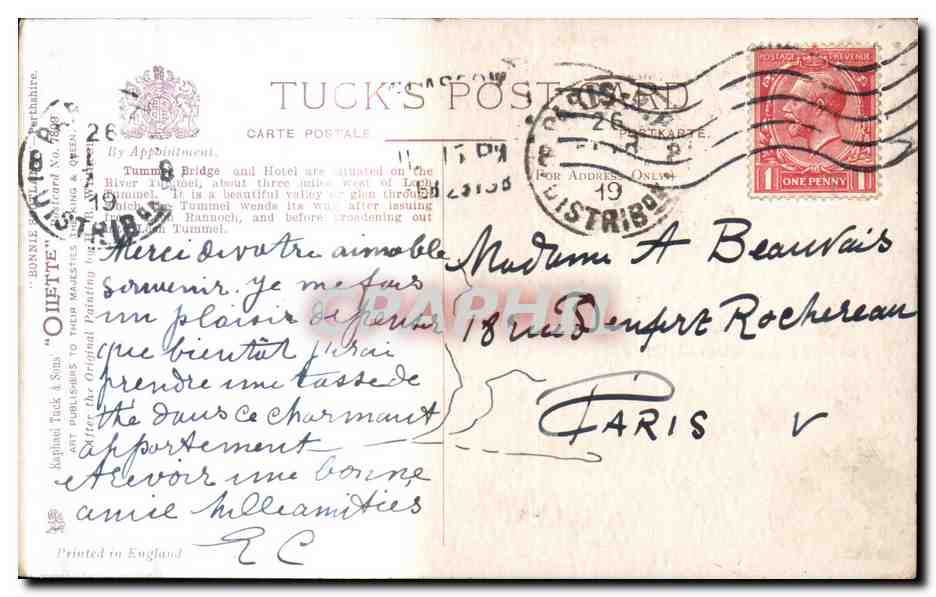 TUCK'S POST CARD
CARTE POSTALE
POSTKARTE
By Appointment.
(FOR ADDRESS ONLY)
Tummel Bridge and Hotel are situated on the
River Tummel, about three miles west of Loch
Tummel. It is a beautiful valley or glen through
which the Tummel wends its way after issuing
from Loch Rannoch, and before broadening out
into Loch Tummel.
Merci de votre aimable
souvenir. Je me fais
un plaisir de penser
que bientôt j'irai
prendre une tasse de
thé dans ce charmant
appartement
et revoir une bonne
amie Mille amitiés
E C
Madame A Beauvais
18 rue Denfert Rochereau
PARIS V
POSTAGE REVENUE
1 ONE PENNY 1
PARIS
26
8
19
DISTRIBON
26
8
19
DISTRIBON
GLASGOW
"BONNIE SCOTLAND" Perthshire.
Raphael Tuck & Sons' "OILETTE" Postcard No. 7899
ART PUBLISHERS TO THEIR MAJESTIES THE KING & QUEEN.
After the Original Painting by
Printed in England
CPAPHIL